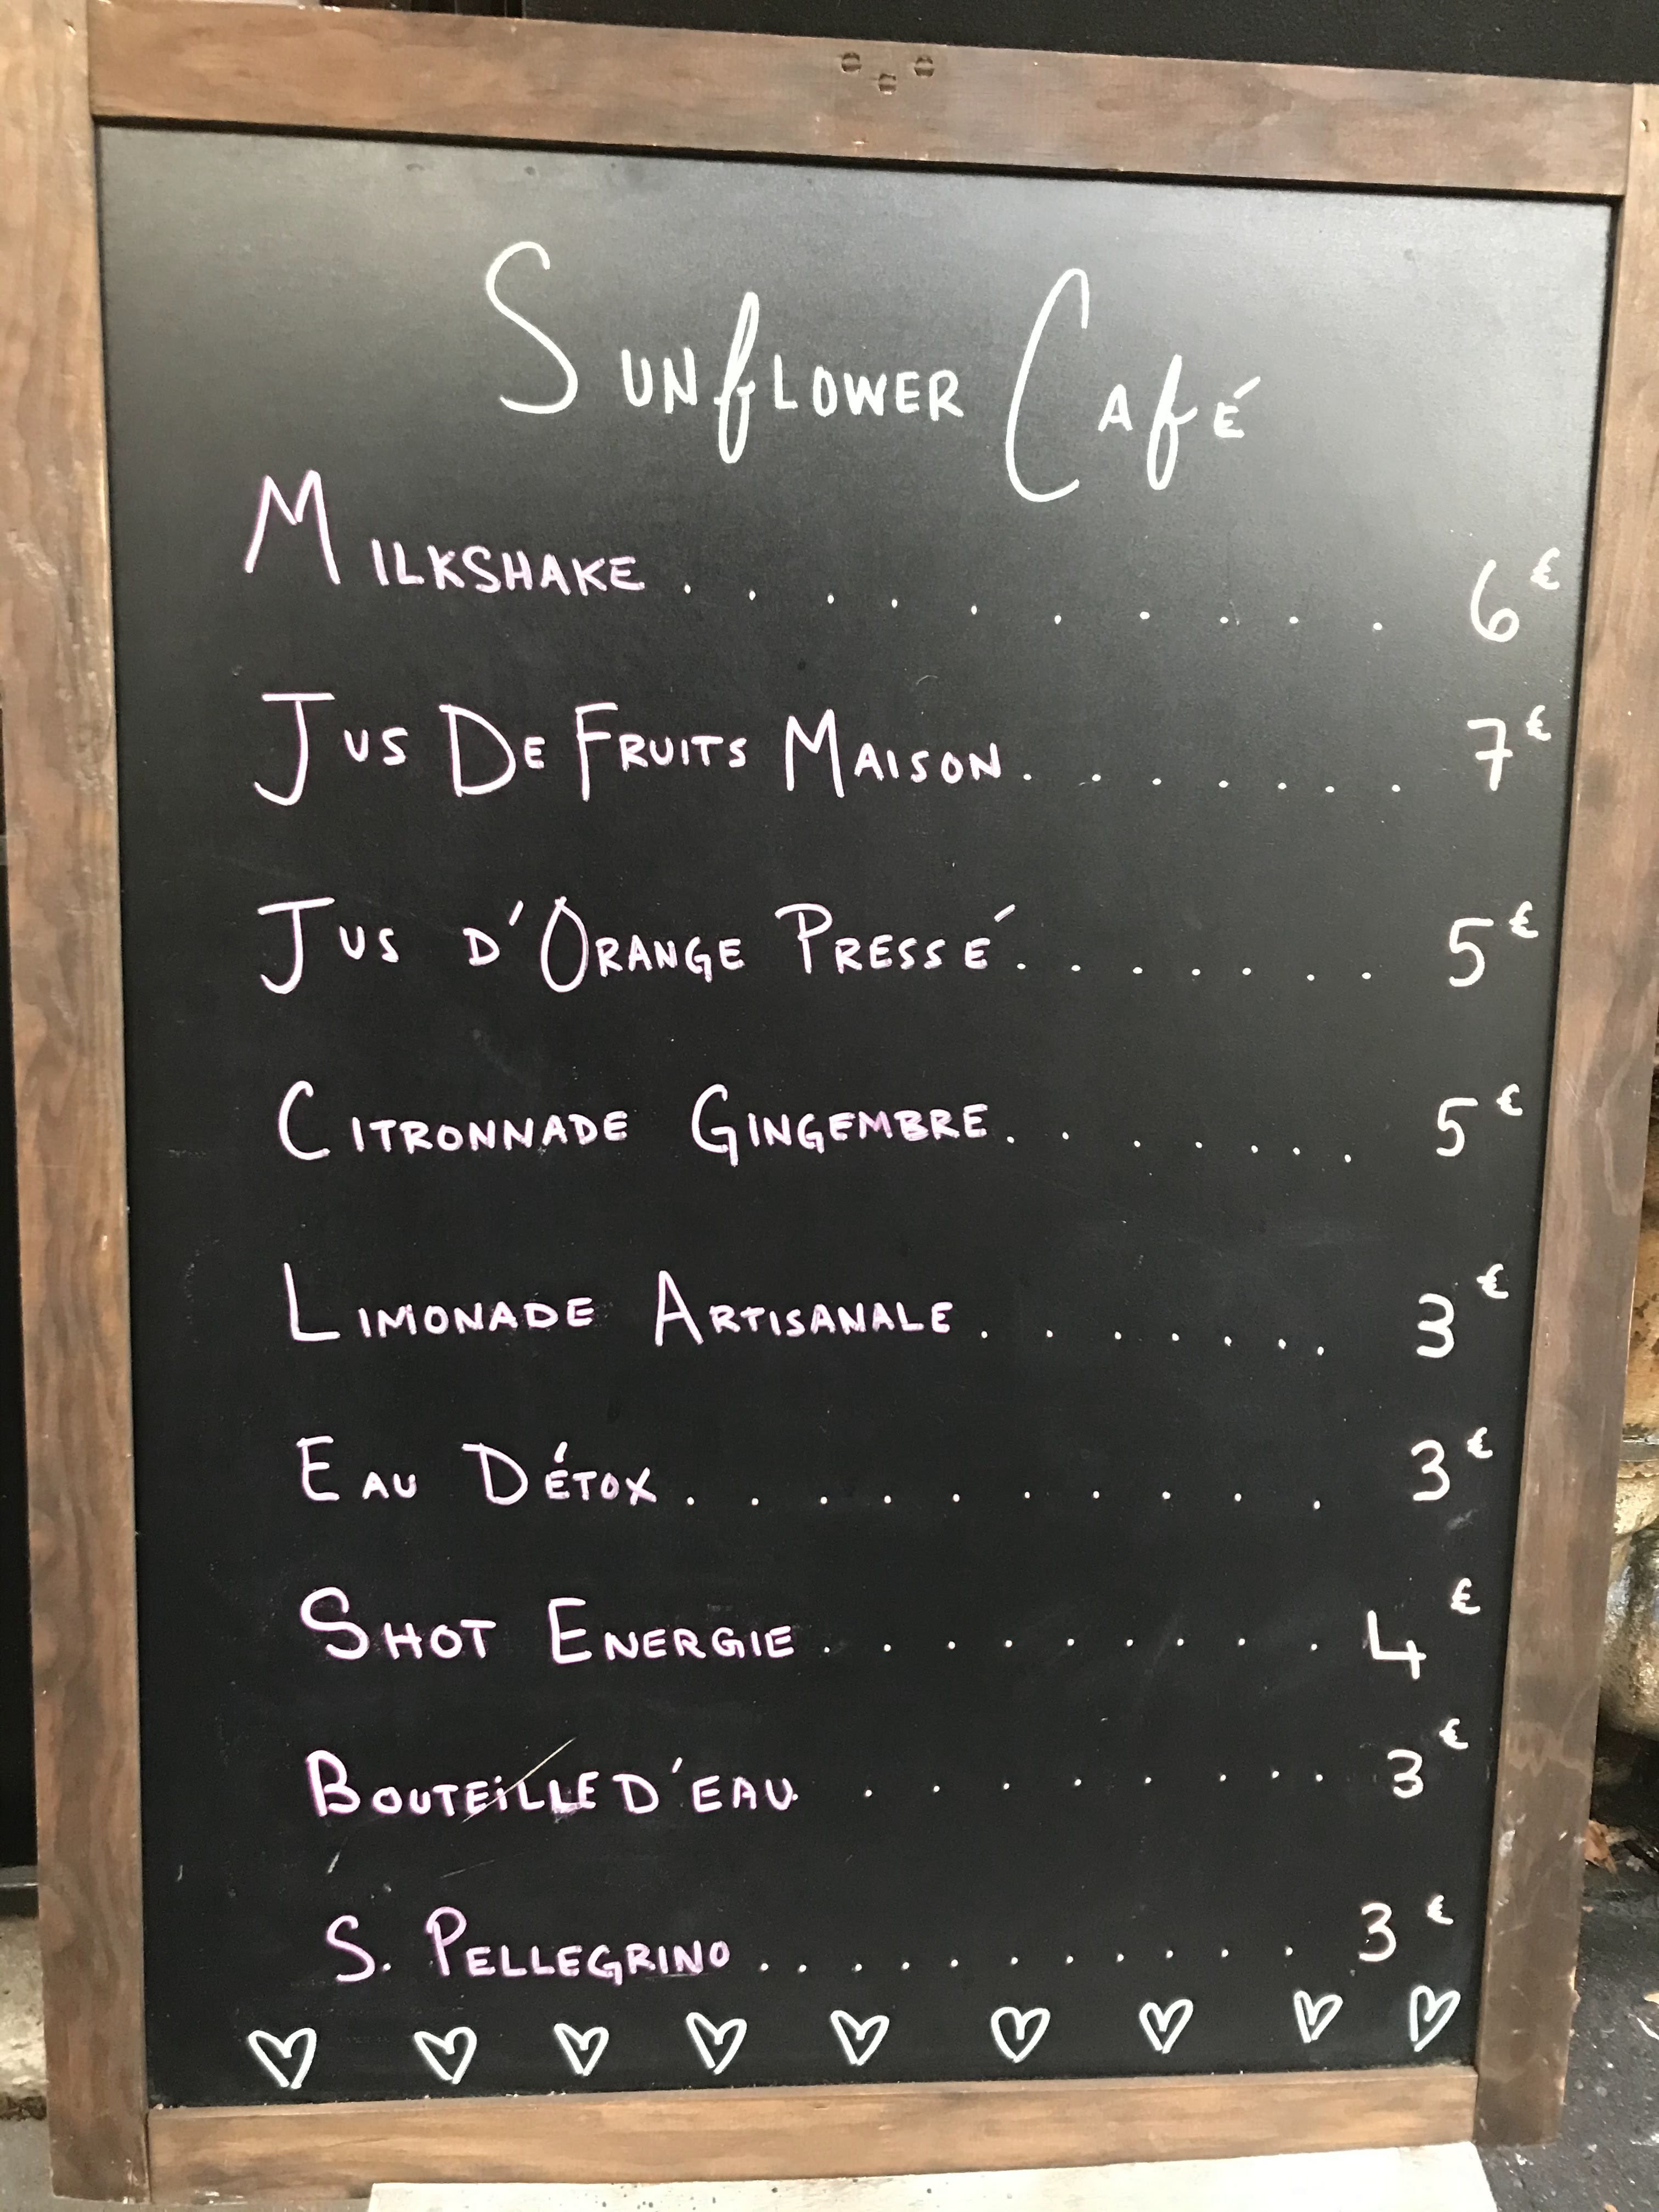 Sunflower Café
Milkshake . . . . . . . . . . 6€
Jus De Fruits Maison . . . . . . . 7€
Jus d'Orange Pressé . . . . . . . 5€
Citronnade Gingembre . . . . . . . 5€
Limonade Artisanale . . . . . . . 3€
Eau Détox . . . . . . . . . . 3€
Shot Energie . . . . . . . . . 4€
Bouteille d'eau . . . . . . . . . 3€
S. Pellegrino . . . . . . . . . . . . 3€